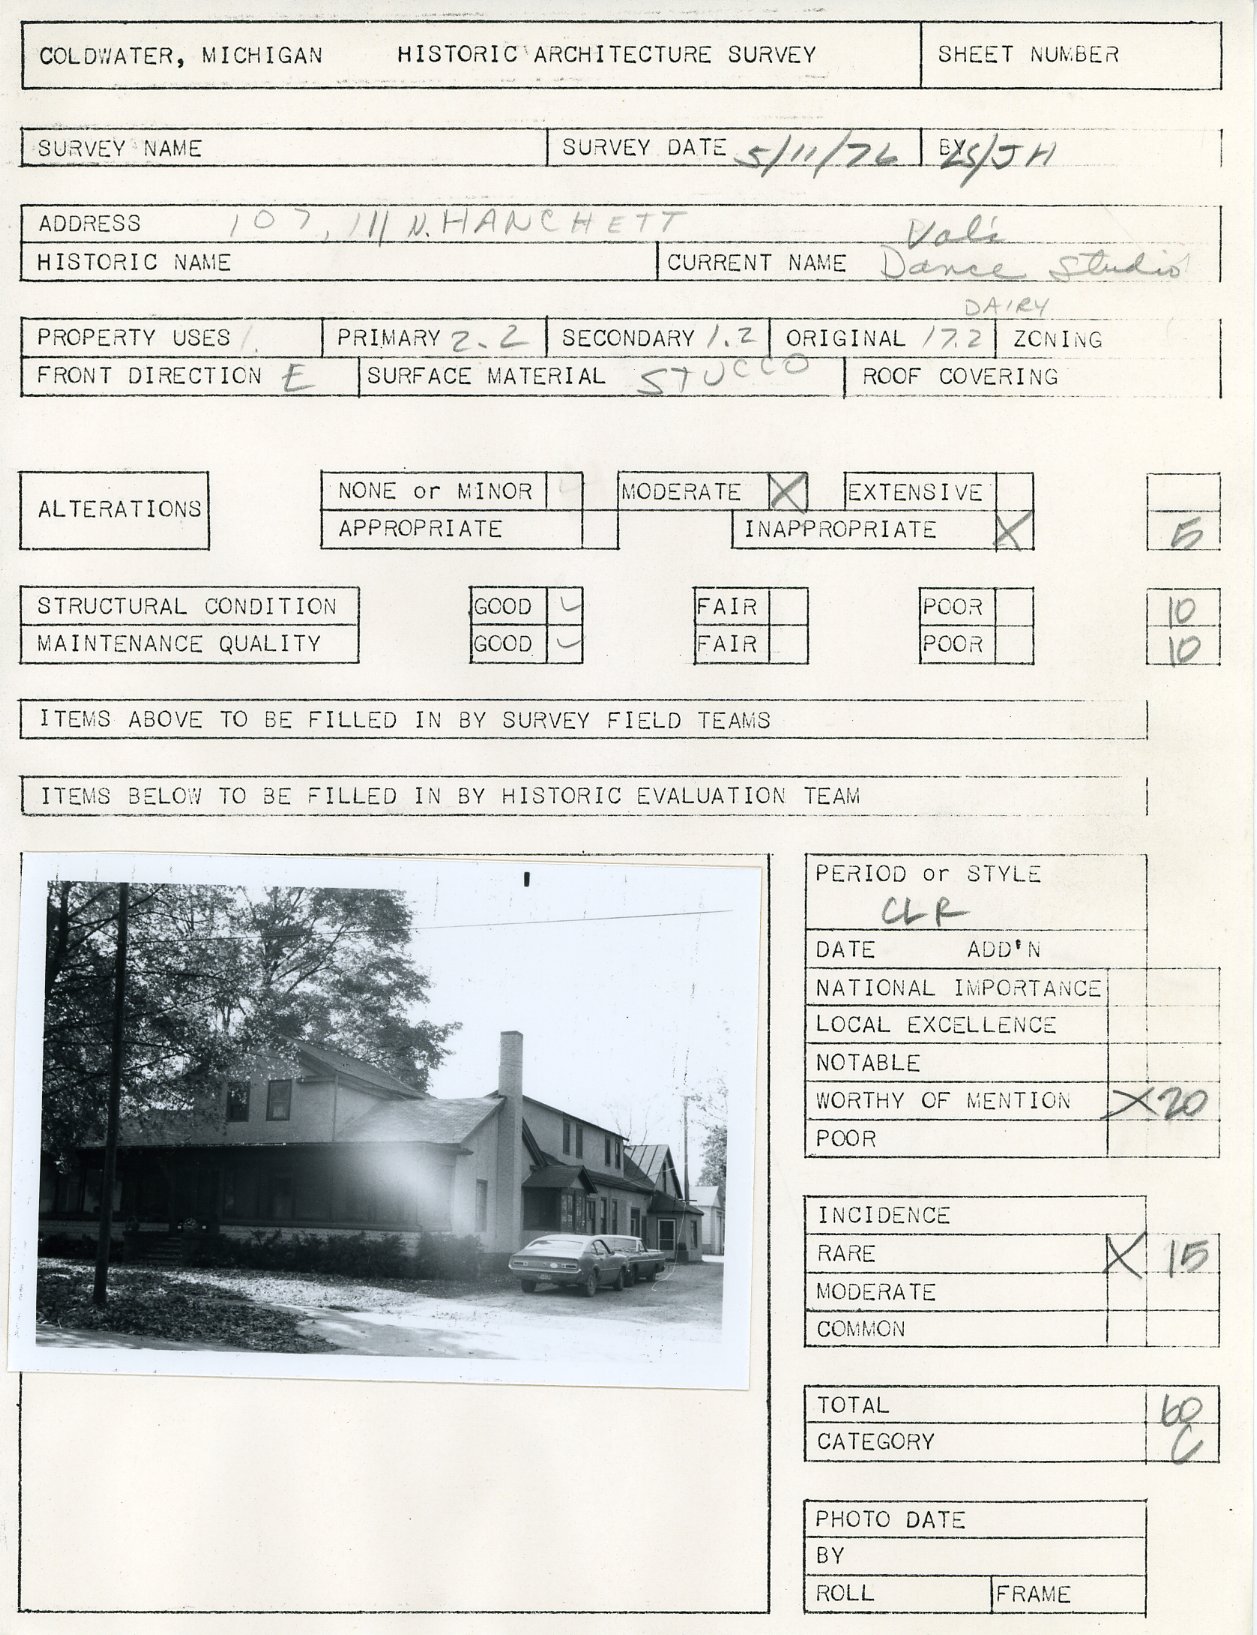 COLDWATER, MICHIGAN HISTORIC ARCHITECTURE SURVEY SHEET NUMBER
SURVEY NAME SURVEY DATE 5/11/76 BY LS/JH
ADDRESS 107, 111 N. HANCHETT
HISTORIC NAME CURRENT NAME Val's Dance Studio
DAIRY
PROPERTY USES 1. PRIMARY 2.2 SECONDARY 1.2 ORIGINAL 17.2 ZONING
FRONT DIRECTION E SURFACE MATERIAL STUCCO ROOF COVERING
ALTERATIONS
NONE or MINOR MODERATE X EXTENSIVE
APPROPRIATE INAPPROPRIATE X 5
STRUCTURAL CONDITION GOOD ✓ FAIR POOR 10
MAINTENANCE QUALITY GOOD ✓ FAIR POOR 10
ITEMS ABOVE TO BE FILLED IN BY SURVEY FIELD TEAMS
ITEMS BELOW TO BE FILLED IN BY HISTORIC EVALUATION TEAM
PERIOD or STYLE
CLR
DATE ADD'N
NATIONAL IMPORTANCE
LOCAL EXCELLENCE
NOTABLE
WORTHY OF MENTION X 20
POOR
INCIDENCE
RARE X 15
MODERATE
COMMON
TOTAL 60
CATEGORY C
PHOTO DATE
BY
ROLL FRAME